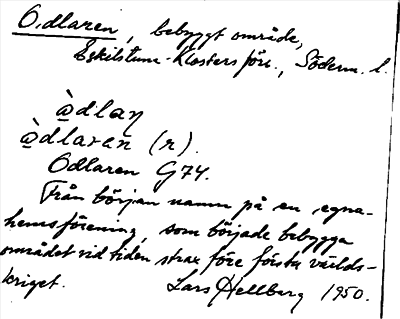 Odlaren, bebyggt område,
Eskilstuna-Klosters förs., Söderm. l.
ò̱dlaṇ
ò̱dlaran (r).
Odlaren G74.
Från början namn på en "egna-
hemsförening, som började bebygga
området vid tiden strax före första världs-
kriget. Lars Hellberg 1950.